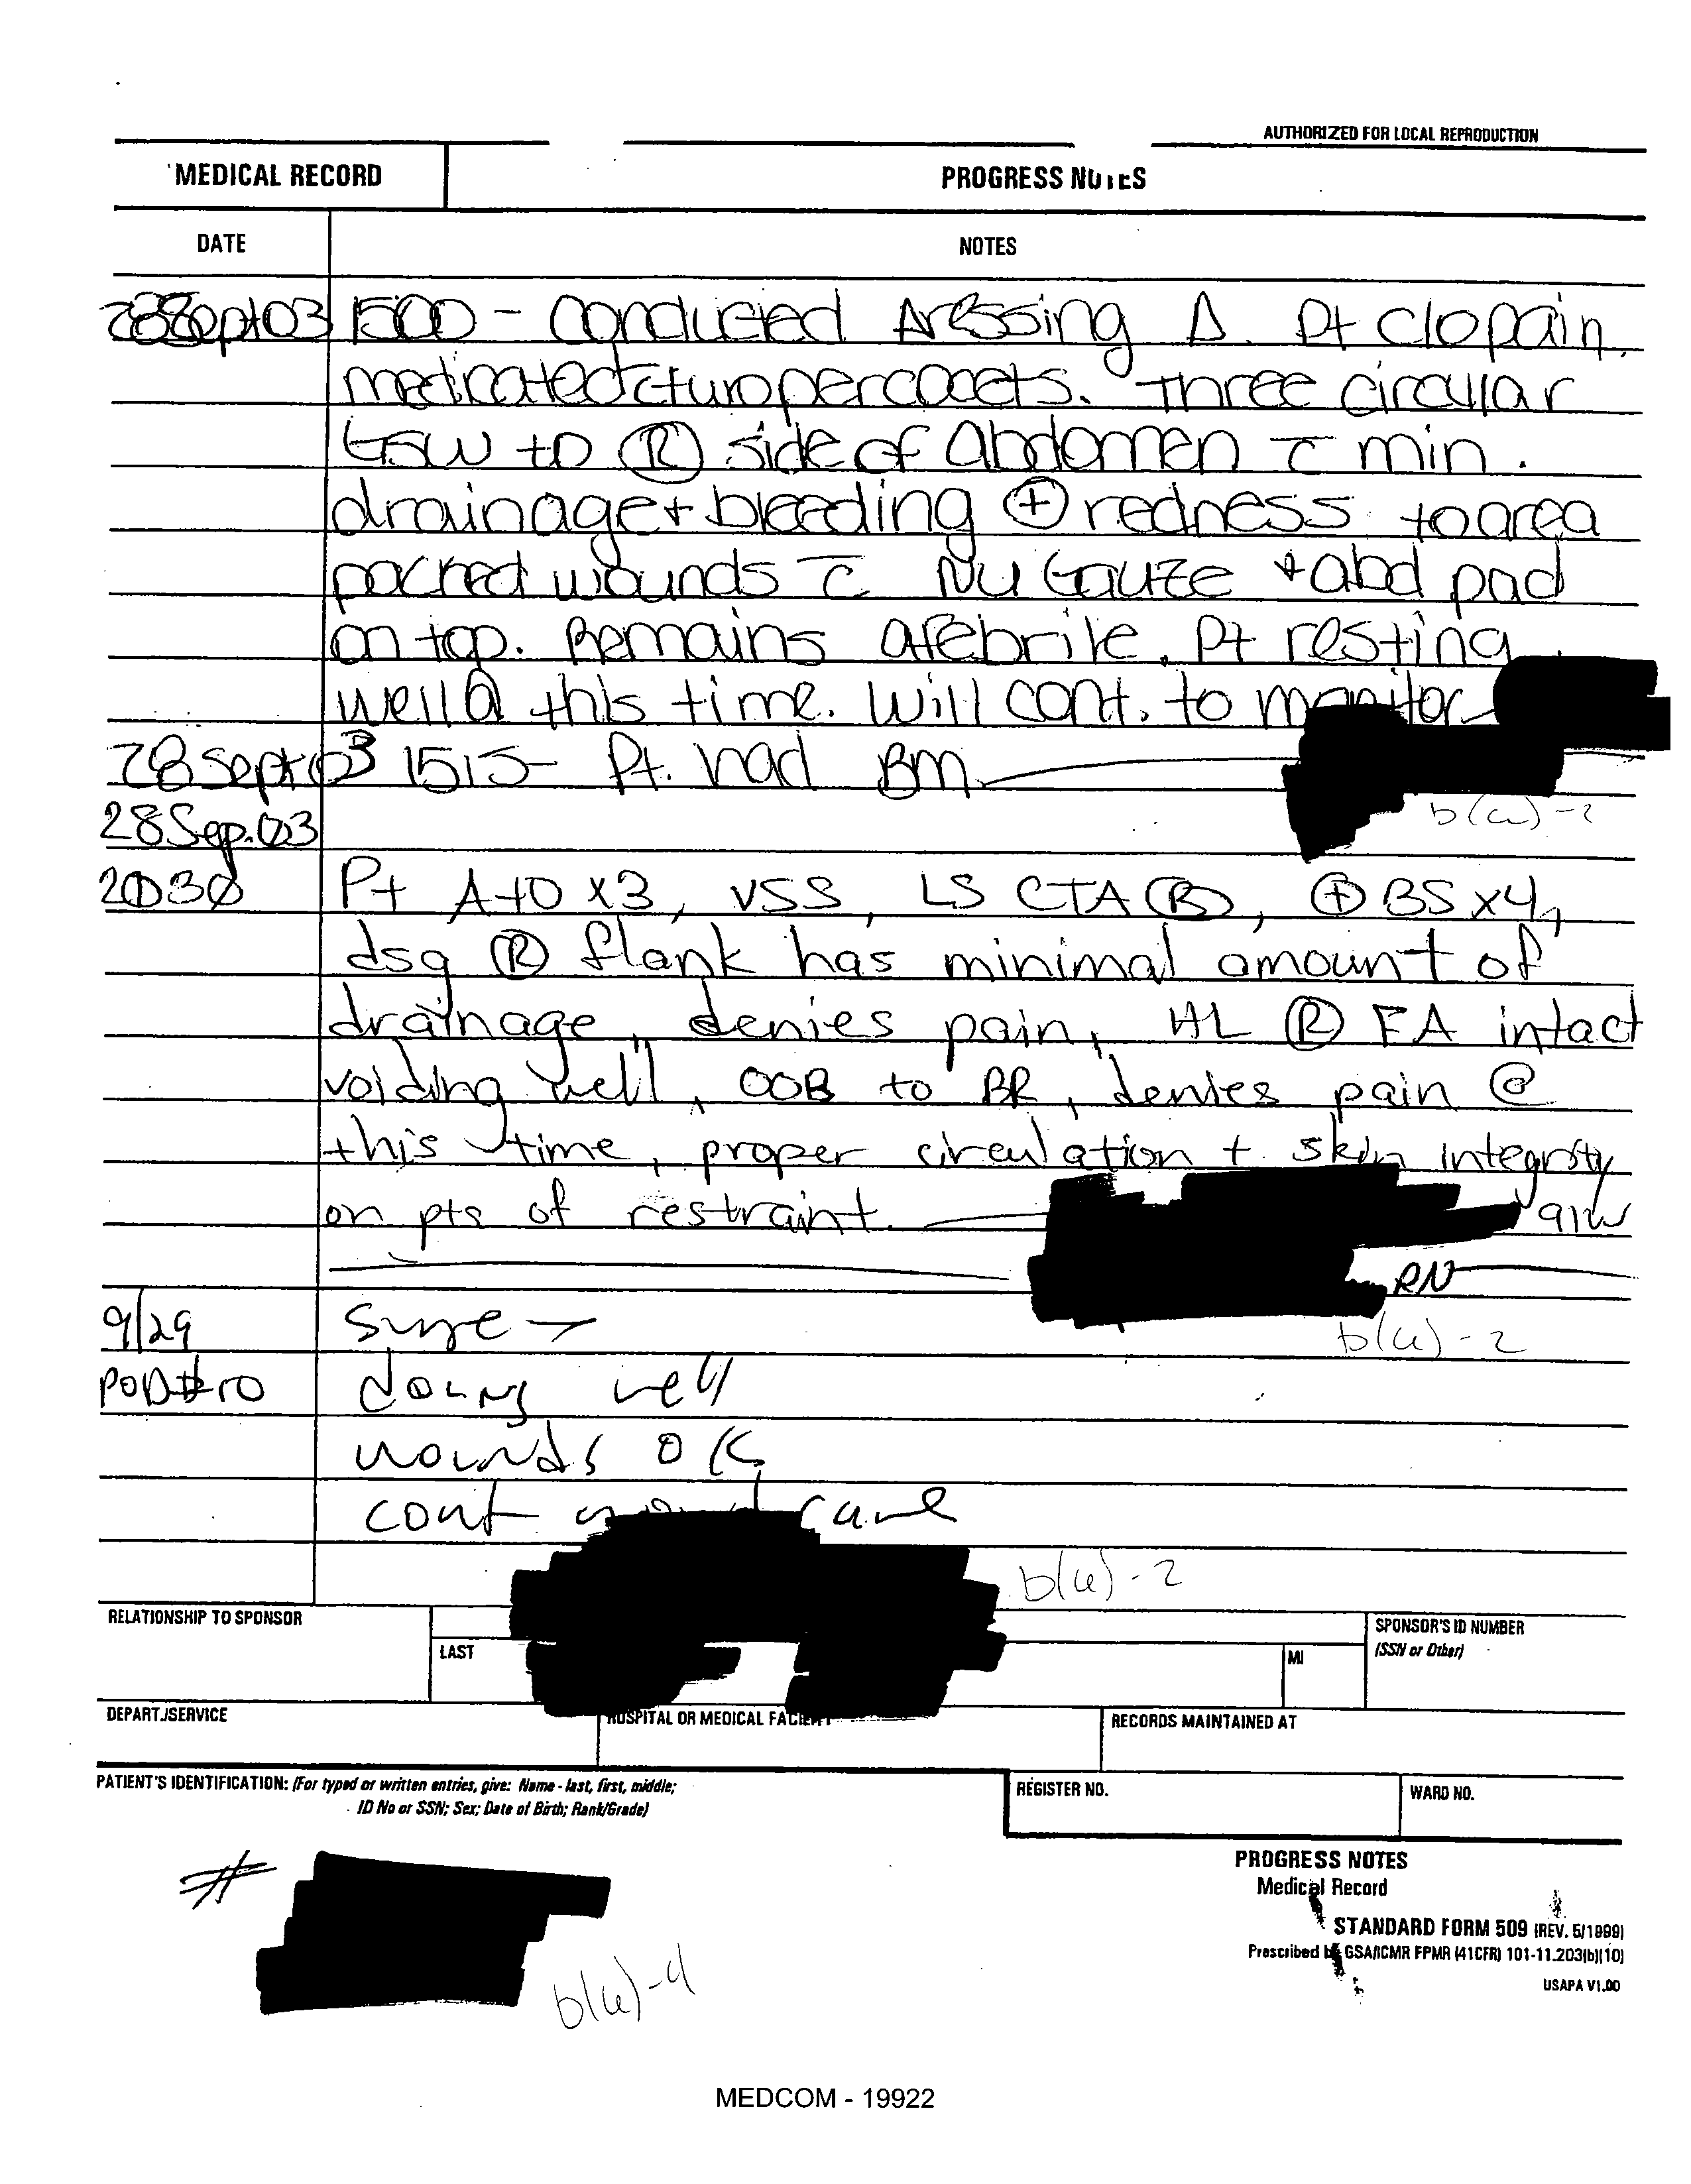 AUTHORIZED FOR LOCAL REPRODUCTION
MEDICAL RECORD
PROGRESS NOTES
DATE
NOTES
28Sept03 1500 - Conducted Dressing Δ. Pt c/o pain,
medicated c̄ two percocets. Three circular
GSW to Ⓡ side of Abdomen c̄ min.
drainage + bleeding ⊕ redness to area
packed wounds c̄ Nu Gauze + abd pad
on top. Remains afebrile. Pt resting
well @ this time. Will cont. to monitor
28 Sept 03 1515- Pt. had BM
b(6)-2
28 Sep. 03
2030 Pt A+O x3, VSS, LS CTA Ⓑ, ⊕ BS x4,
dsg Ⓡ flank has minimal amount of
drainage, denies pain, HL Ⓡ FA intact
voiding well, OOB to BR, denies pain @
this time, proper circulation + skin integrity
on pts of restraint. 91W
RN
9/29 Surge
b(6)-2
POD#10 doing well
wounds OK
cont wound care
b(6)-2
RELATIONSHIP TO SPONSOR
LAST
MI
SPONSOR'S ID NUMBER
(SSN or Other)
DEPART./SERVICE
HOSPITAL OR MEDICAL FACILITY
RECORDS MAINTAINED AT
PATIENT'S IDENTIFICATION: (For typed or written entries, give: Name - last, first, middle;
ID No or SSN; Sex; Date of Birth; Rank/Grade)
REGISTER NO.
WARD NO.
#
b(6)-4
PROGRESS NOTES
Medical Record
STANDARD FORM 509 (REV. 5/1999)
Prescribed by GSA/ICMR FPMR (41CFR) 101-11.203(b)(10)
USAPA V1.00
MEDCOM - 19922